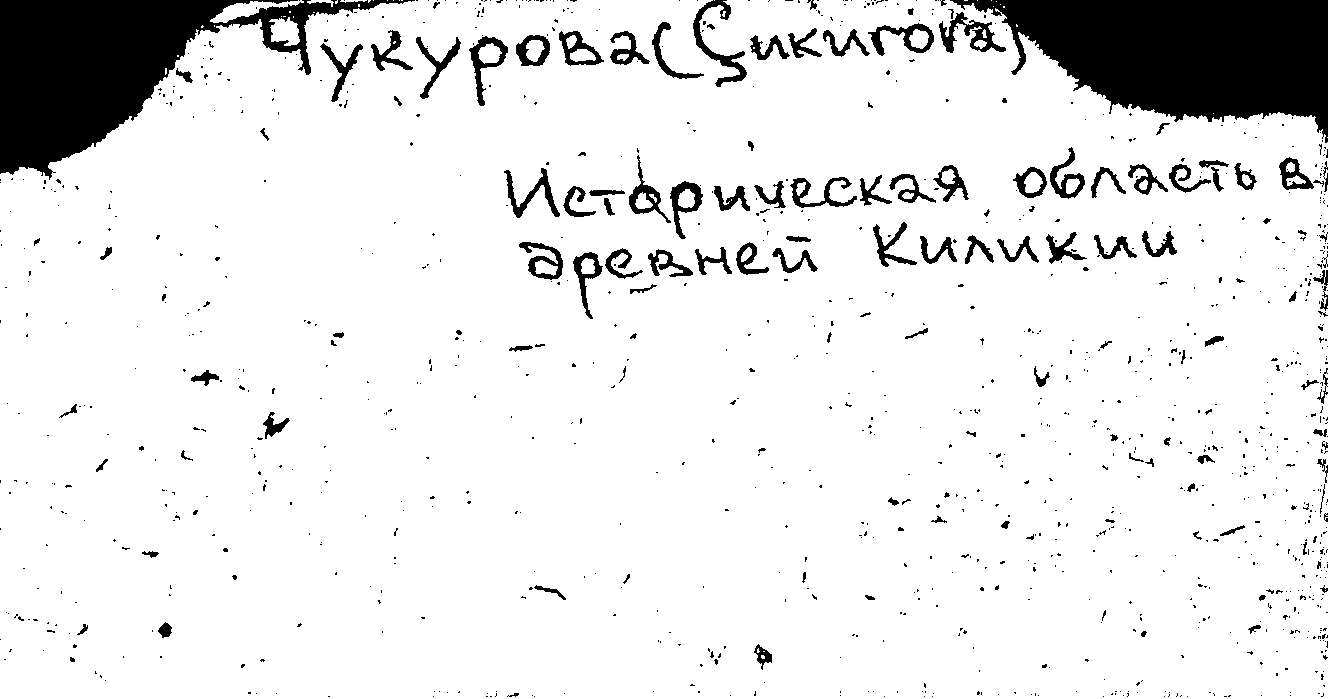 Чукурова (Çukurova)
Историческая область в
древней Киликии